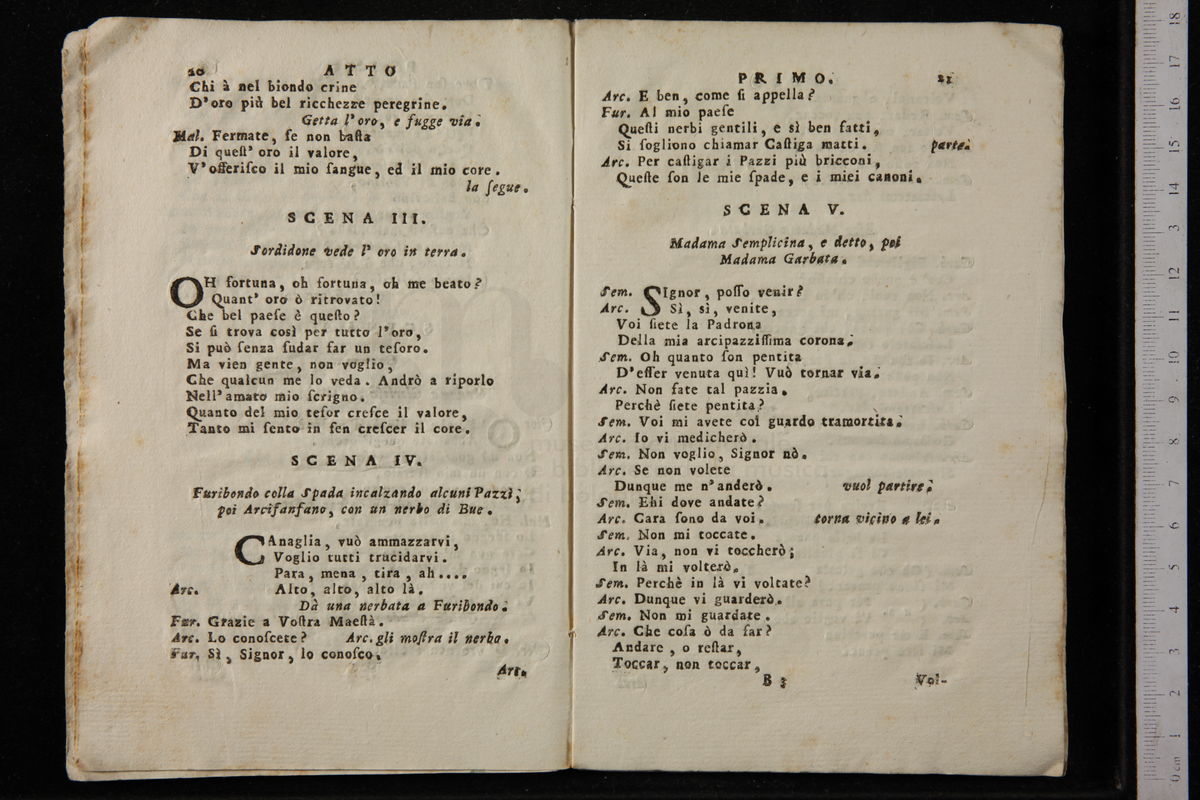 20 ATTO
Chi à nel biondo crine
D'oro più bel ricchezze peregrine.
Getta l'oro, e fugge via.
Mal. Fermate, ſe non baſta
Di queſt' oro il valore,
V'offeriſco il mio ſangue, ed il mio core.
la ſegue.
SCENA III.
Sordidone vede l' oro in terra.
OH fortuna, oh fortuna, oh me beato?
Quant' oro ò ritrovato!
Che bel paeſe è queſto?
Se ſi trova così per tutto l'oro,
Si può ſenza ſudar far un teſoro.
Ma vien gente, non voglio,
Che qualcun me lo veda. Andrò a riporlo
Nell'amato mio ſcrigno.
Quanto del mio teſor creſce il valore,
Tanto mi ſento in ſen creſcer il core.
SCENA IV.
Furibondo colla Spada incalzando alcuni Pazzi;
poi Arcifanfano, con un nerbo di Bue.
CAnaglia, vuò ammazzarvi,
Voglio tutti trucidarvi.
Para, mena, tira, ah....
Arc. Alto, alto, alto là.
Dà una nerbata a Furibondo.
Fur. Grazie a Voſtra Maeſtà.
Arc. Lo conoſcete? Arc. gli moſtra il nerbo.
Fur. Sì, Signor, lo conoſco.
Arc.
PRIMO. 21
Arc. E ben, come ſi appella?
Fur. Al mio paeſe
Queſti nerbi gentili, e sì ben fatti,
Si ſogliono chiamar Caſtiga matti. parte.
Arc. Per caſtigar i Pazzi più bricconi,
Queſte ſon le mie ſpade, e i miei canoni.
SCENA V.
Madama Semplicina, e detto, poi
Madama Garbata.
Sem. SIgnor, poſſo venir?
Arc. Sì, sì, venite,
Voi ſiete la Padrona
Della mia arcipazziſſima corona.
Sem. Oh quanto ſon pentita
D'eſſer venuta quì! Vuò tornar via.
Arc. Non fate tal pazzia.
Perchè ſiete pentita?
Sem. Voi mi avete col guardo tramortita.
Arc. Io vi medicherò.
Sem. Non voglio, Signor nò.
Arc. Se non volete
Dunque me n'anderò. vuol partire.
Sem. Ehi dove andate?
Arc. Cara ſono da voi. torna vicino a lei.
Sem. Non mi toccate.
Arc. Via, non vi toccherò;
In là mi volterò.
Sem. Perchè in là vi voltate?
Arc. Dunque vi guarderò.
Sem. Non mi guardate.
Arc. Che coſa ò da far?
Andare, o reſtar,
Toccar, non toccar,
B 3 Vol-